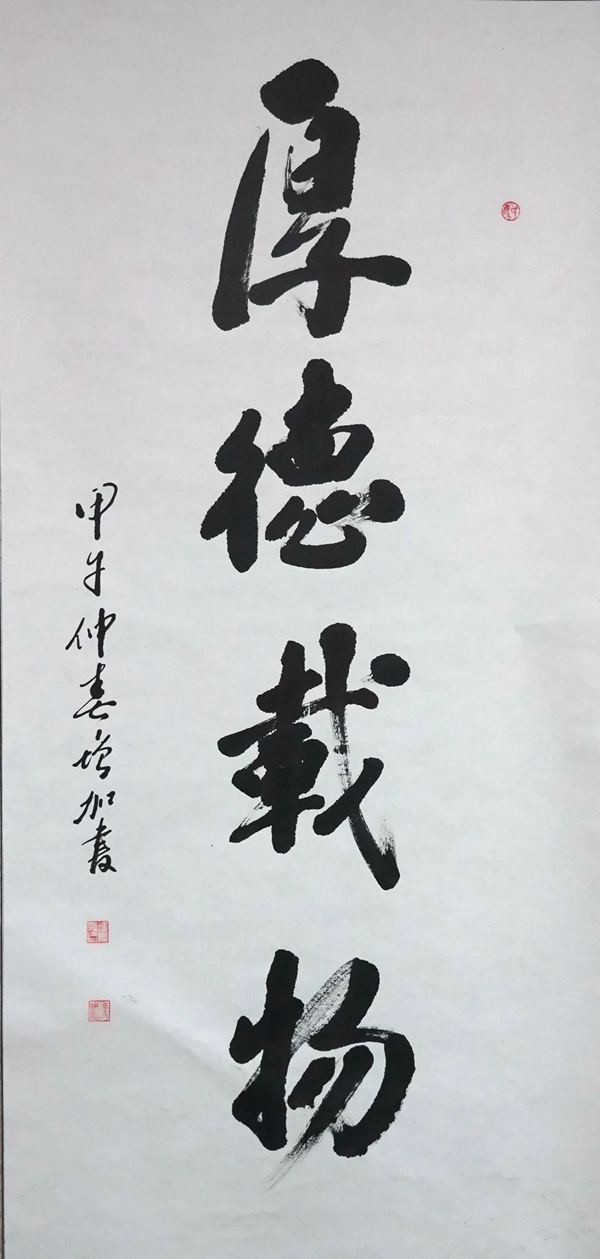 厚德載物
甲午仲春增加書